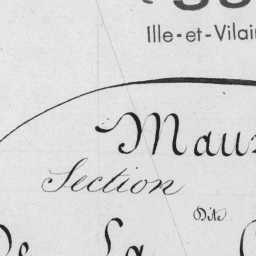 Ille-et-Vilai
Mau
Section
Dite
De La